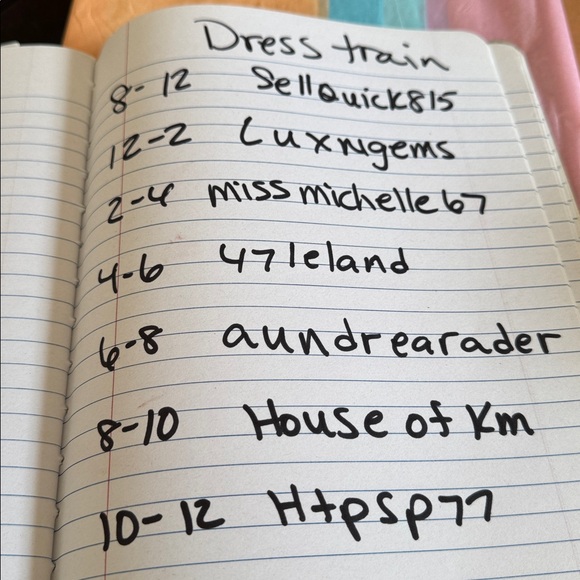 Dress train
8-12 SellQuick815
12-2 Luxngems
2-4 missmichelle67
4-6 47leland
6-8 aundrearader
8-10 House of Km
10-12 Htpsp77